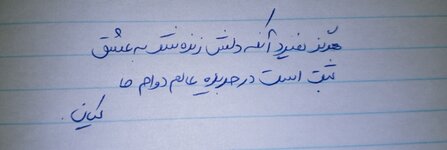 هرگز نمیرد آنکه دلش زنده شد به عشق
ثبت است در جریده عالم دوام ما
کیان.